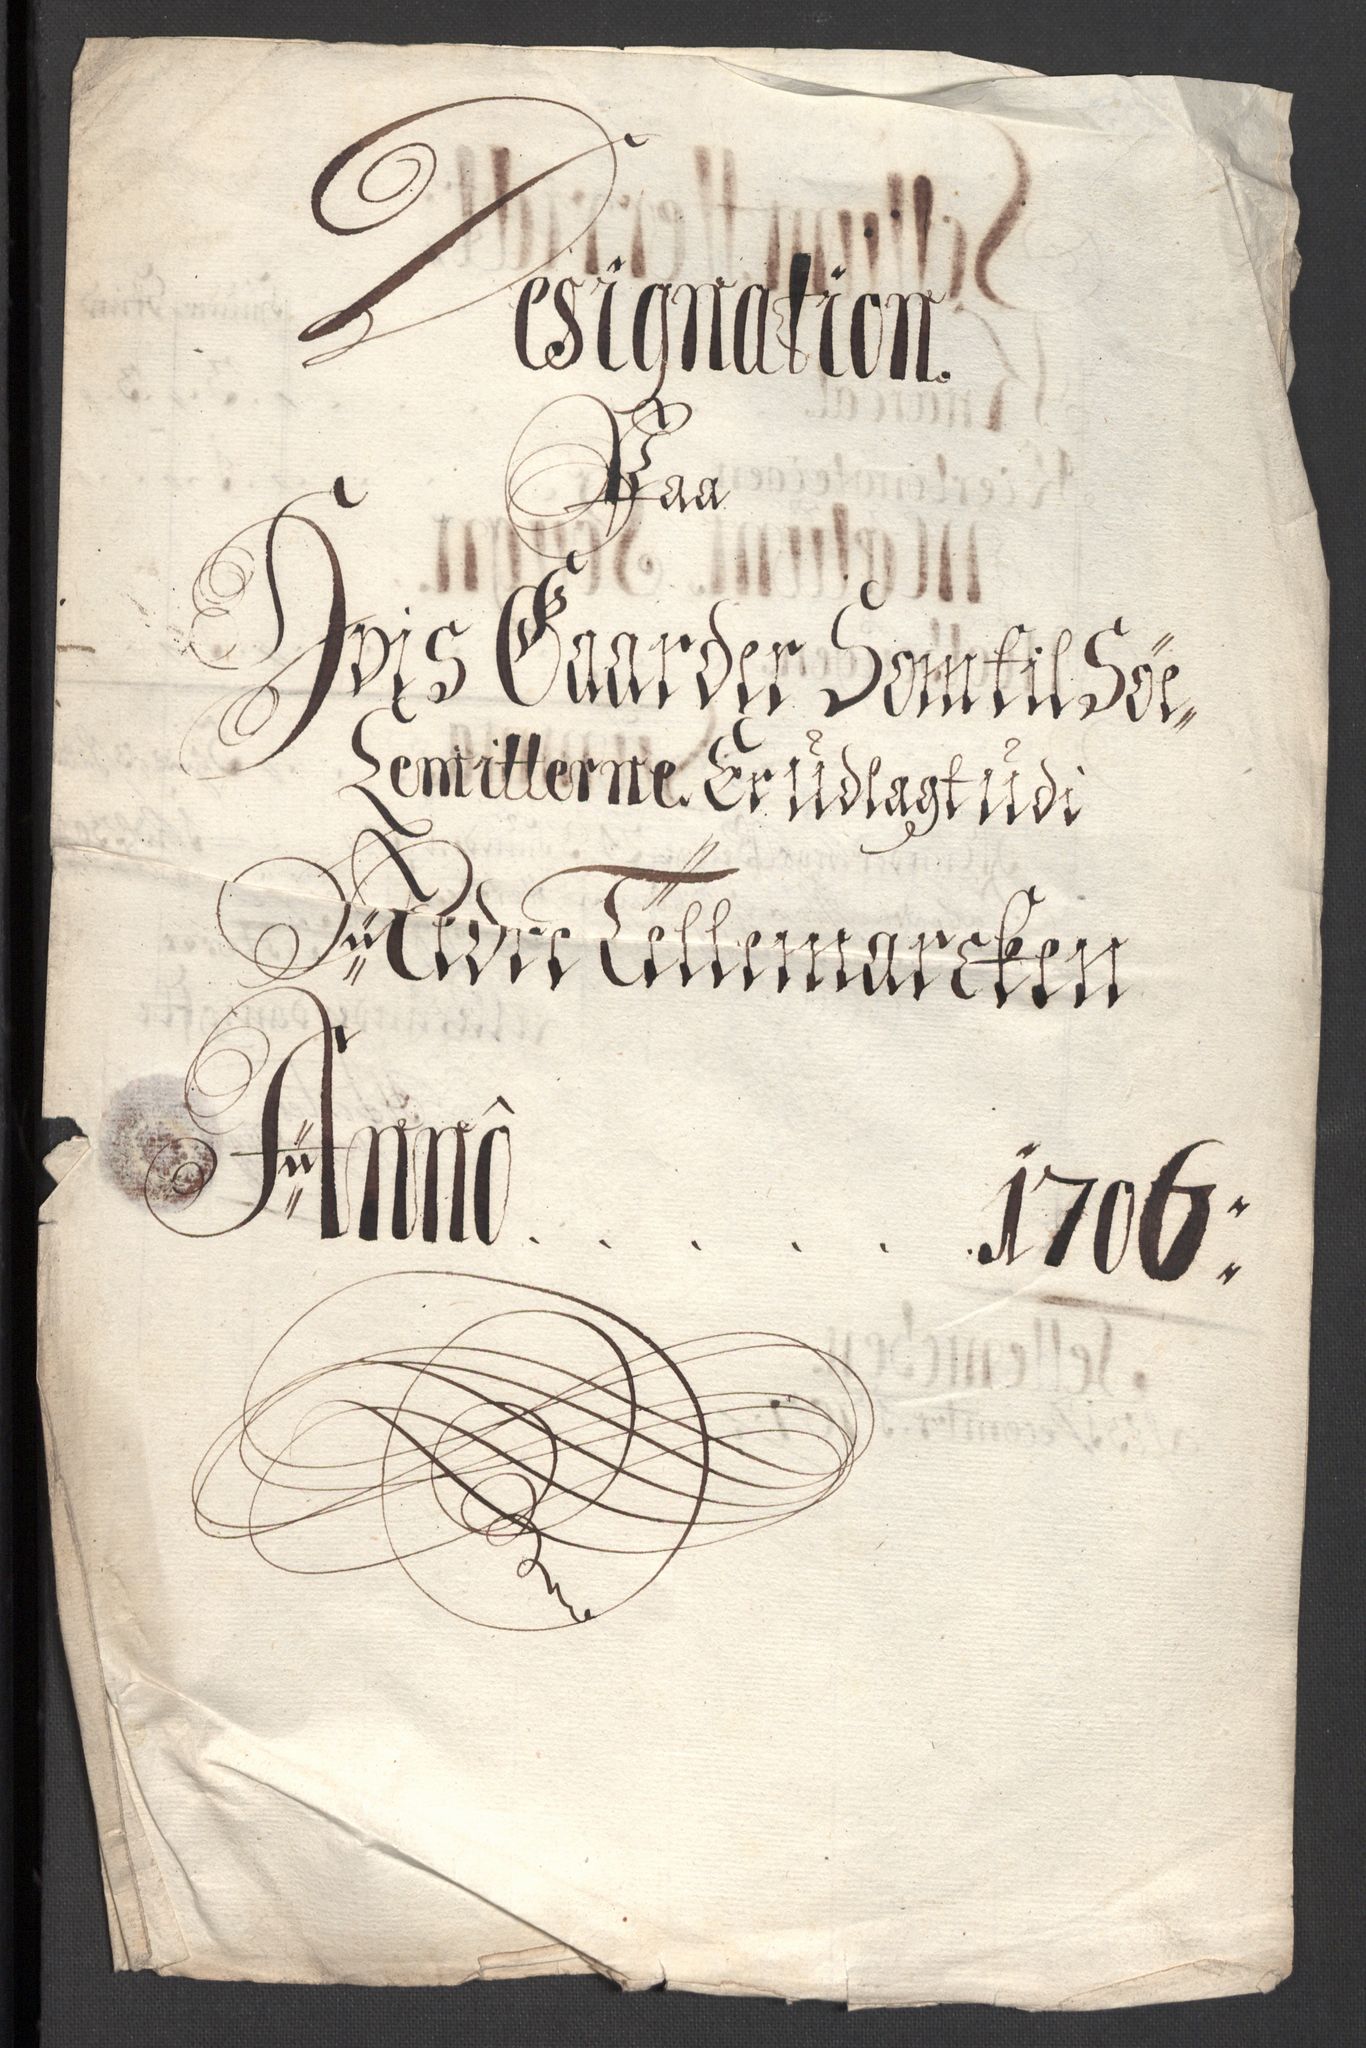 Designation.
Paa
Hvis Gaarder Somtil Söe-
Lemitterne. Er ŭdlagt ŭdi
Nedre Tellemarcken
Annô . . . . . 1706: